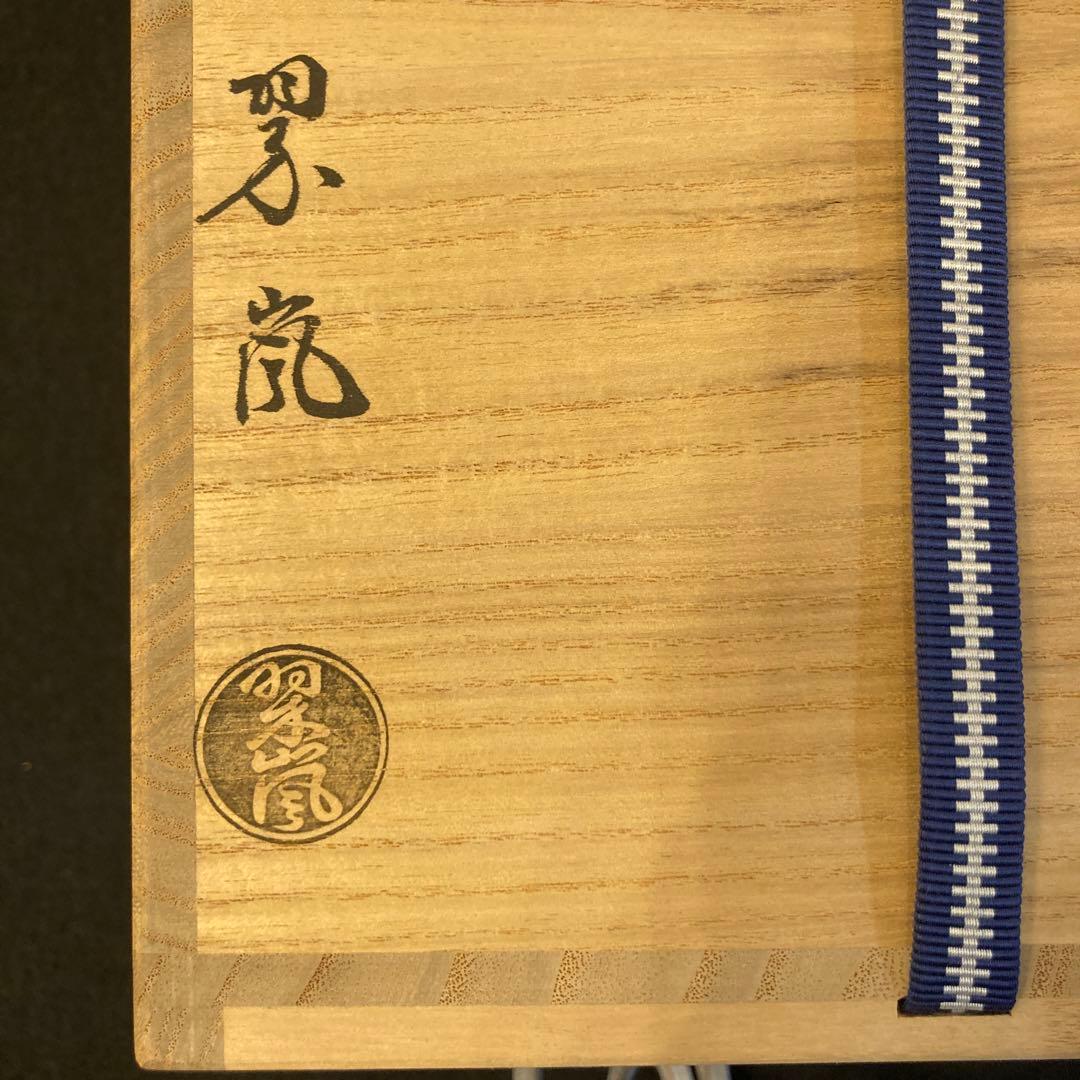 翠嵐
翠嵐